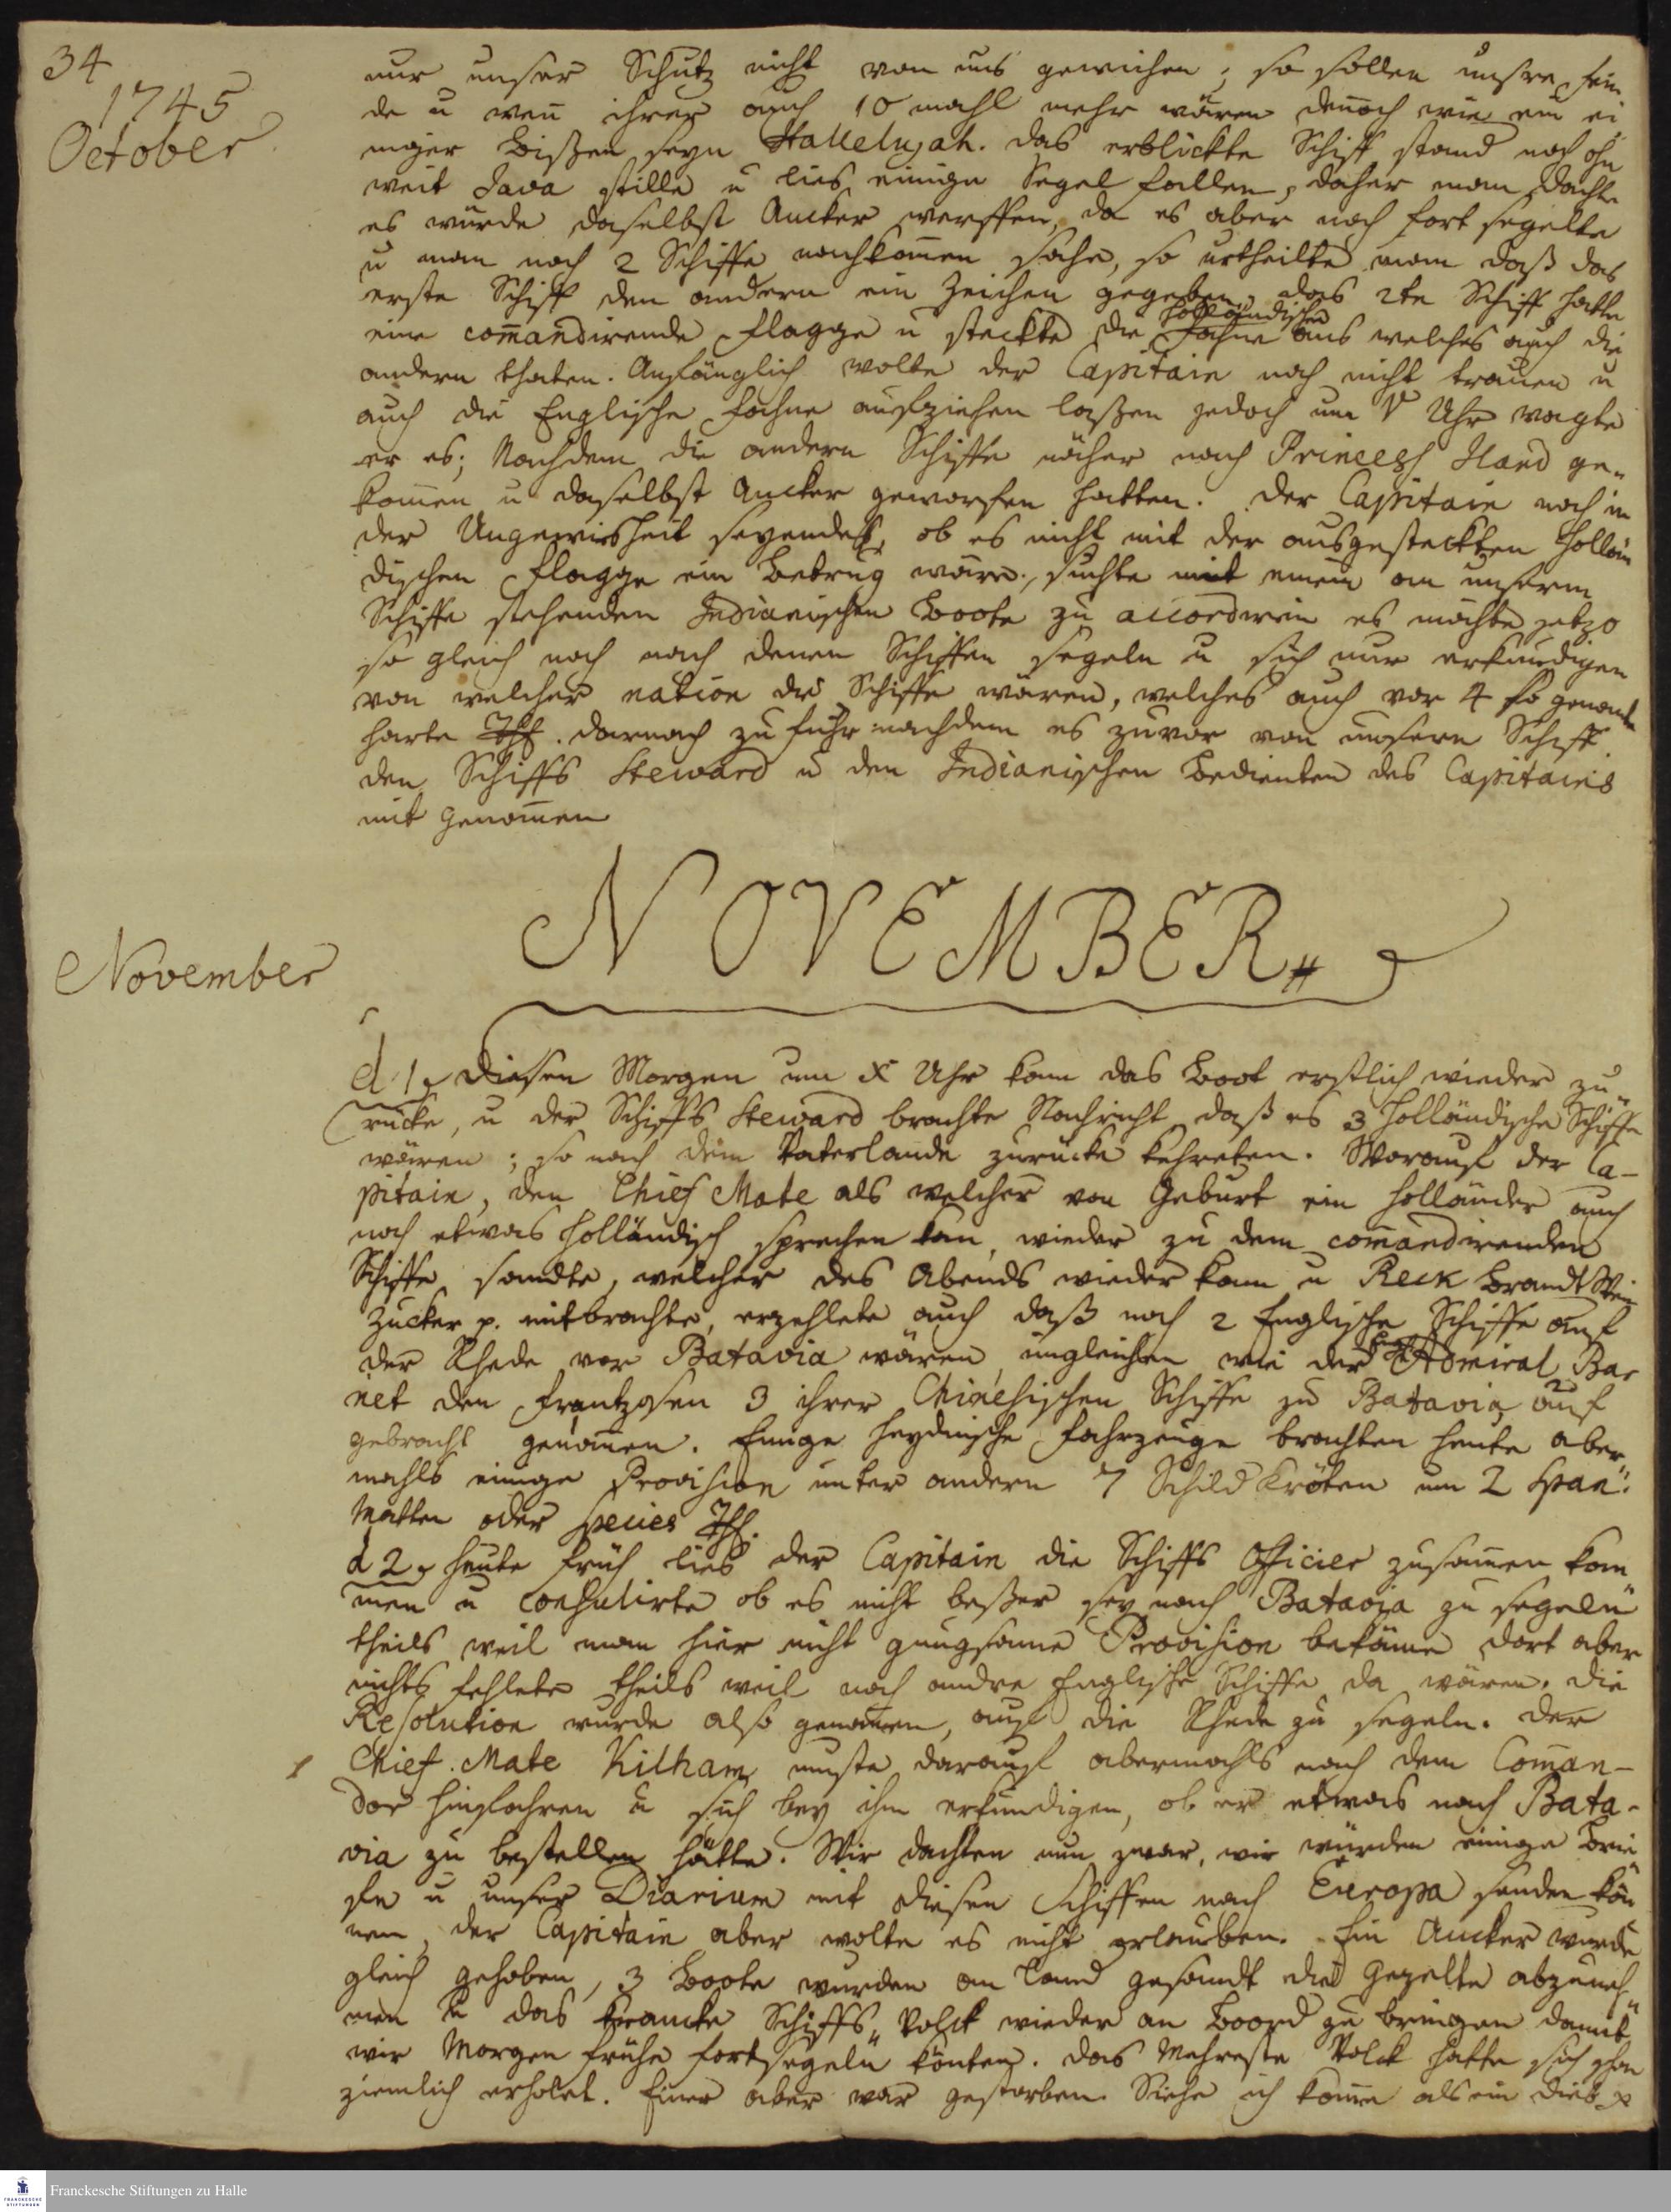 34
1745
October
nur unser Schutz nicht von uns gewichen; so sollen unsre Fein
de u wen̄ ihrer auch 10 mahl mehr wären den̄och wie ein ei
niger Bißen seyn Hallelujah. Das erblickte Schiff stand noch ohn
weit Java stille u lies einige Segel fallen, daher man dachte
es würde daselbst Ancker werffen, da es aber noch fort segelte
u man noch 2 Schiffe nachkom̄en sahe, so urtheilte man daß das
erste Schiff den andern ein Zeichen gegeben, das 2te Schiff hatte
holländische
eine com̄andirende Flagge u steckte die Fahne aus welches auch die
andern thaten. Anfänglich wolte der Capitain noch nicht trauen u
auch die Englische Fahne aufziehen laßen jedoch um V Uhr wagte
er es; Nachdem die andern Schiffe näher nach Princess Iland ge-
kom̄en u daselbst Ancker geworfen hatten. Der Capitain noch in
der Ungewisheit seyende, ob es nicht mit der ausgesteckten Hollän
dischen Flagge ein Betrug wäre, suchte mit einem an unserm
Schiffe stehenden Indianischen Boote zu accordiren es möchte jetzo
so gleich noch nach denen Schiffen segeln u sich nur erkundigen
von welcher nation die Schiffe wären, welches auch vor 4 so genante
harte Thl. darnach zu fuhr nachdem es zuvor von unsern Schiff
den Schiffs Steward u den Indianischen Bedienten des Capitains
mit genom̄en
NOVEMBER.
November
d 1. Diesen Morgen um X Uhr kam das Boot erstlich wieder zu
rücke, u der Schiffs Steward brachte Nachricht, daß es 3 Holländische Schiffe
wären; so nach dem Vaterlande zurücke kehreten. Worauf der Ca-
pitain, den Chief Mate als welcher von Geburt ein Holländer auch
noch etwas holländisch sprechen kan, wieder zu dem com̄andirenden
Schiffe sandte, welcher des Abends wieder kam u Reck Brandt Wein
Zucker p. mitbrachte, erzehlete auch daß noch 2 Englische Schiffe auf
der Rhede vor Batavia wären ungleichen wie der Admiral Bar
net den Frantzosen 3 ihrer Chinesischen Schiffe zu Batavia auf
gebracht genom̄en. Einige heydnische Fahrzeuge brachten heute aber
mahls einige Provision unter andern 7 Schildkröten um 2 span:
Matten oder species Thl.
d 2. Heute früh lies der Capitain die Schiffs Officier zusam̄en kom
men u consulirte ob es nicht beßer sey nach Batavia zu segeln
theils weil man hier nicht gnugsame Provision bekäme dort aber
nichts fehlete theils weil noch andre Englische Schiffe da wären. Die
Resolution wurde also genom̄en, auf die Rhede zu segeln. Der
Chief Mate Kilham muste darauf abermahls nach dem Com̄an-
dor hinfahren u sich bey ihm erkundigen, ob er etwas nach Bata-
via zu bestellen hätte. Wir dachten nun zwar, wir würden einige Brie
fe u unser Diarium mit diesen Schiffen nach Europa senden kön
nen, der Capitain aber wolte es nicht erlauben. Ein Ancker wurde
gleich gehoben, 3 Boote wurden an Land gesandt die Gezelte abzuneh
men u das krancke Schiffs Volck wieder an Boord zu bringen damit
wir Morgen frühe fortsegeln könten. Das Mehreste Volck hatte sich schon
ziemlich erholet. Einer aber war gestorben. Siehe ich kom̄e als ein Dieb p
Franckesche Stiftungen zu Halle